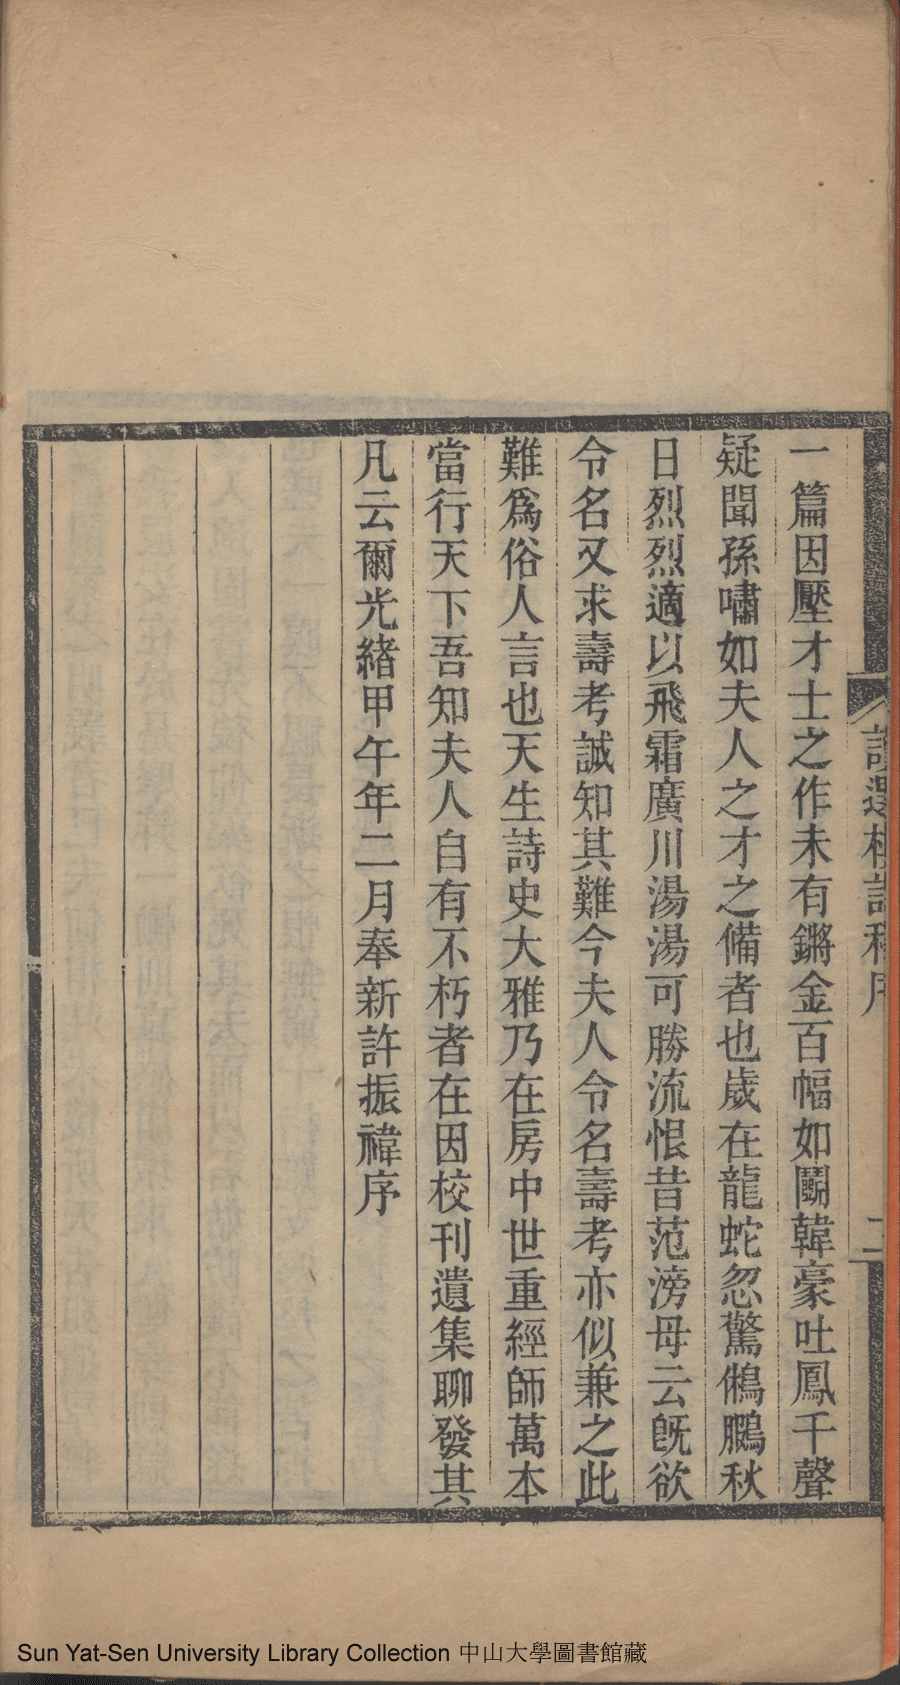 一篇因壓才士之作未有鏘金百幅如鬭韓豪吐鳳千聲
疑聞孫嘯如夫人之才之備者也歲在龍蛇忽驚鵂鵬秋
日烈烈適以飛霜廣川湯湯可勝流恨昔范滂母云既欲
令名又求壽考誠知其難今夫人令名壽考亦似兼之此
難爲俗人言也天生詩史大雅乃在房中世重經師萬本
當行天下吾知夫人自有不朽者在因校刊遺集聊發其
凡云爾光緒甲午年二月奉新許振禕序
選 詩 序
二
Sun Yat-Sen University Library Collection 中山大學圖書館藏